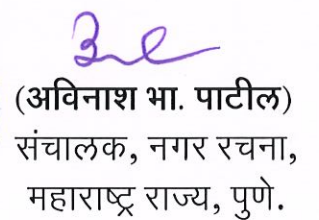 (अविनाश भा. पाटील)
संचालक, नगर रचना,
महाराष्ट्र राज्य, पुणे.